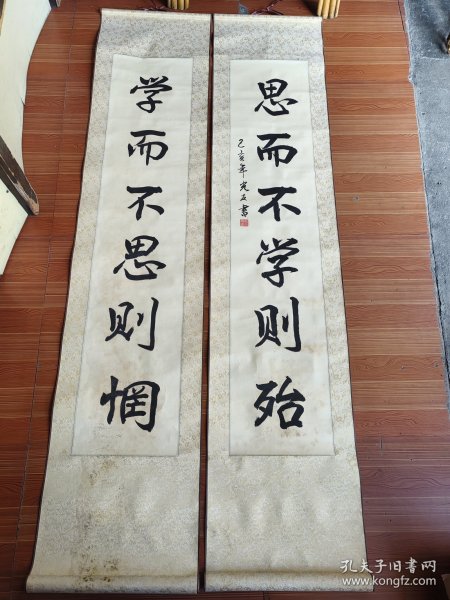 学而不思则惘
思而不学则殆
己亥年書
孔夫子旧书网
www.kongfz.com